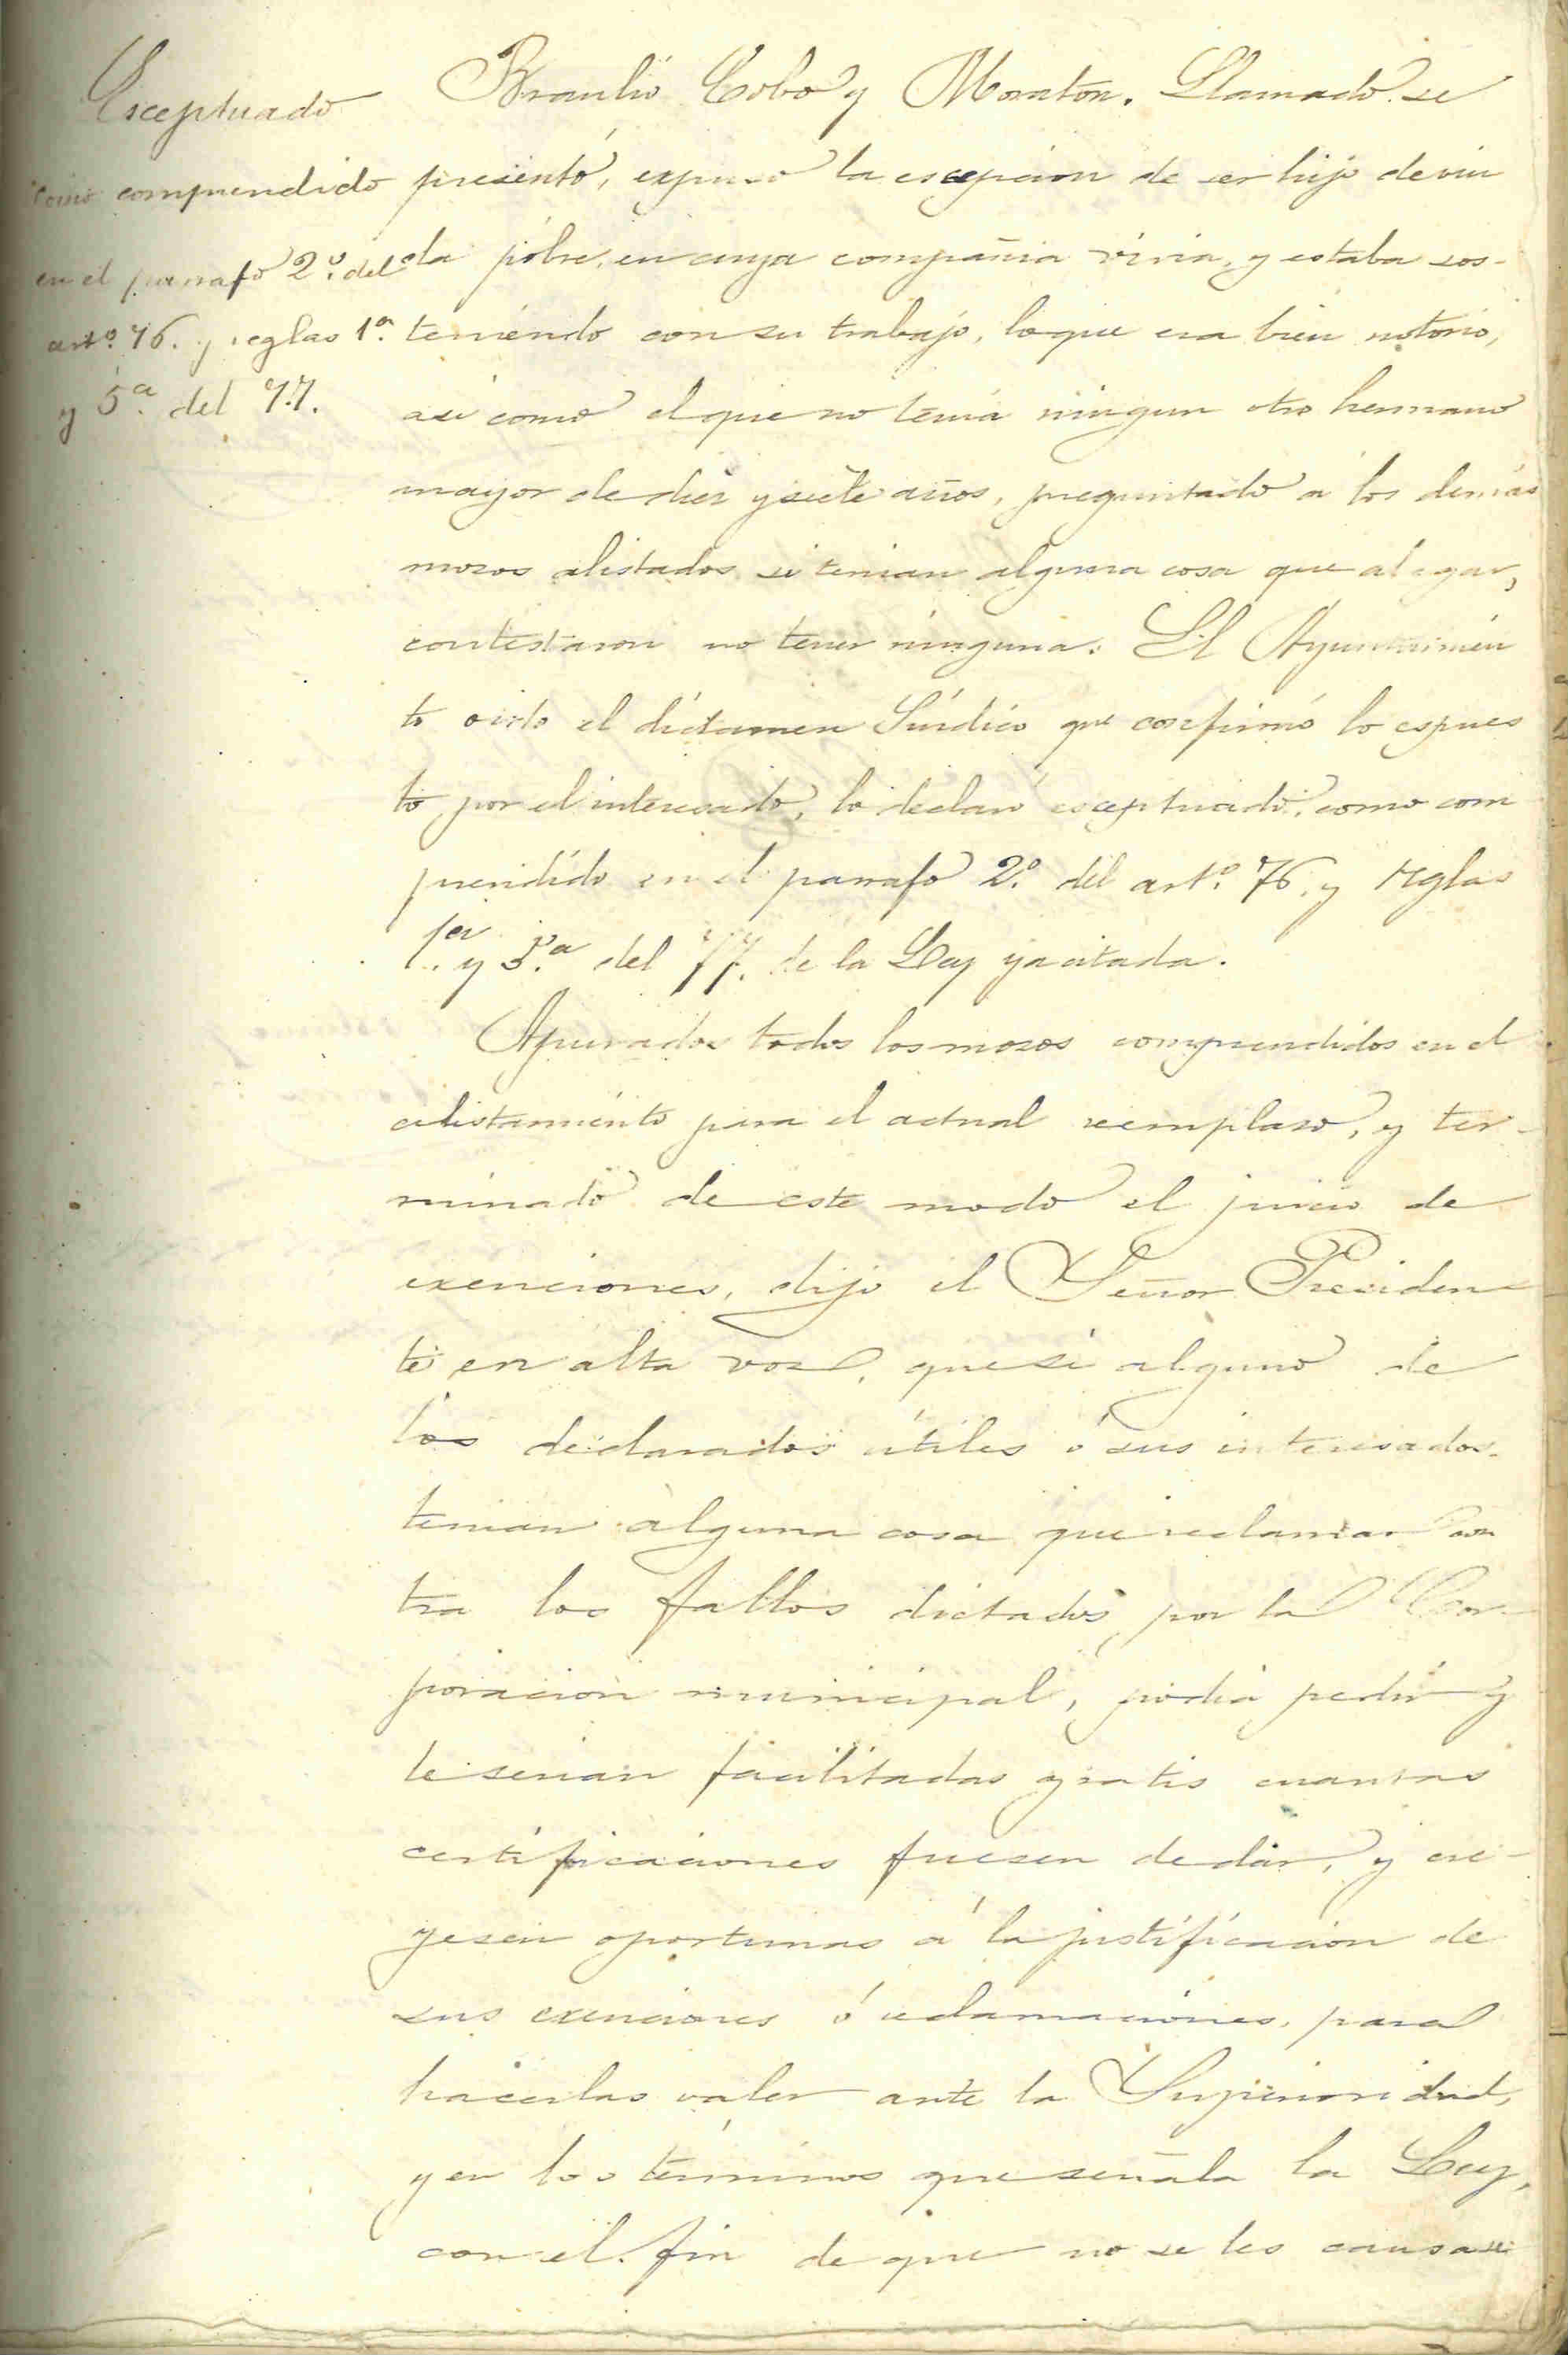 Esceptuado
como comprendido
en el parrafo 2º. del
artº. 76. y reglas 1ª.
y 5ª. del 77.
Braulio Cobo y Monton. Llamado se
presentó, expuso la escepcion de ser hijo de viu
da pobre, en cuya compañia vivia, y estaba sos-
teniendo con su trabajo, lo que era bien notorio,
asi como el que no tenia ningun otro hermano
mayor de diez y siete años, preguntado a los demás
mozos alistados si tenian alguna cosa que alegar,
contestaron no tener ninguna. El Ayuntamien
to oido el dictamen Sindico que confirmó lo espues
to por el interesado, lo declaró esceptuado, como com
prendido en el parrafo 2º. del artº. 76. y reglas
1ª. y 5ª. del 77. de la Ley ya citada.
Apurados todos los mozos comprendidos en el
alistamiento para el actual reemplazo, y ter-
minado de este modo el juicio de
exenciones, dijo el Señor Presiden
te en alta voz, que si alguno de
los declarados útiles ó sus interesados
tenian alguna cosa que reclamar con
tra los fallos dictados por la Cor-
poracion municipal, podia pedir y
le serian facilitadas gratis cuantas
certificaciones fuesen de dar, y cre-
yesen oportunas á la justificacion de
sus exenciones ó reclamaciones, para
hacerlas valer ante la Superioridad,
y en los términos que señala la Ley,
con el fin de que no se les causase